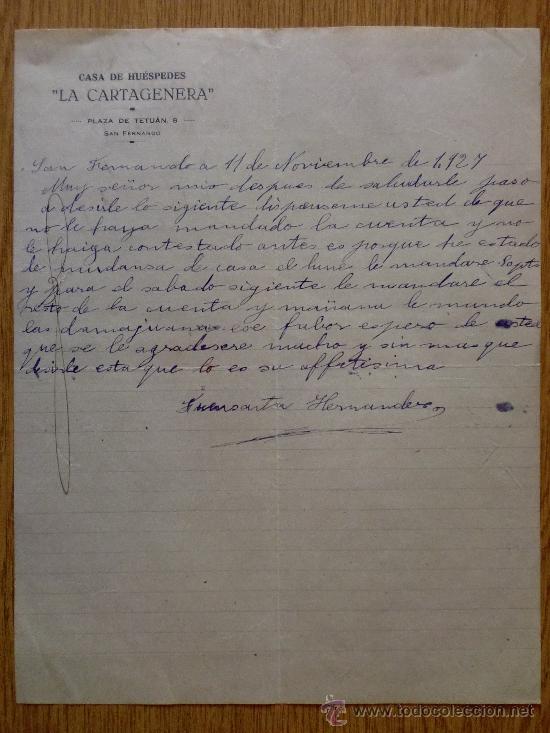 CASA DE HUÉSPEDES
"LA CARTAGENERA"
PLAZA DE TETUÁN, 8
SAN FERNANDO
San Fernando a 11 de Noviembre de 1.927
Muy señor mio despues de saludarle paso
a desirle lo sigiente dispenseme usted de que
no le haya mandado la cuenta y no
le haiga contestado antes es porque he estado
de mudansa de casa el lunes le mandare ptas
y para el sabado sigiente le mandare el
resto de la cuenta y mañana le mando
las damajuanas ese fabor espero de usted
que se le agradesere mucho y sin mas que
desirle esta que lo es su affetisima
Fuensanta Hernandes
todocoleccion
www.todocoleccion.net